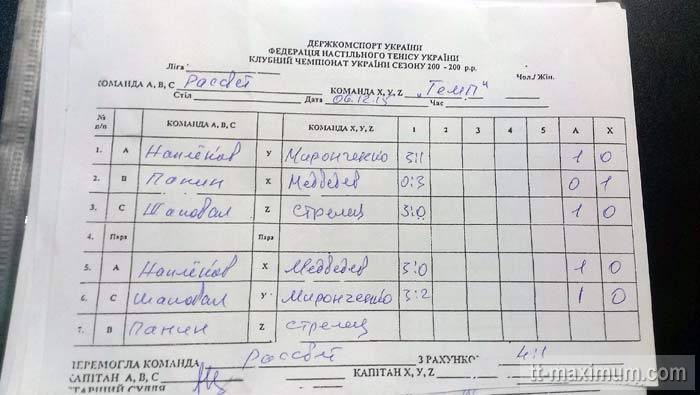 ДЕРЖКОМСПОРТ УКРАЇНИ
ФЕДЕРАЦІЯ НАСТІЛЬНОГО ТЕНІСУ УКРАЇНИ
КЛУБНИЙ ЧЕМПІОНАТ УКРАЇНИ СЕЗОНУ 200 - 200 р.р.
Ліга Чол./Жін.
КОМАНДА А, В, С Рассвет КОМАНДА X, Y, Z „Темп"
Стіл Дата 06.12.15 Час
№ п/п КОМАНДА А, В, С КОМАНДА X, Y, Z 1 2 3 4 5 А X
1. А Наплёков У Миронченко 3:1 1 0
2. В Панин X Медведев 0:3 0 1
3. С Шаповал Z Стрелец 3:0 1 0
4. Пара Пара
5. А Наплёков X Медведев 3:0 1 0
6. С Шаповал У Миронченко 3:2 1 0
7. В Панин Z Стрелец
ПЕРЕМОГЛА КОМАНДА Рассвет З РАХУНКО 4:1
КАПІТАН А, В, С КАПІТАН X, Y, Z
СТАРШИЙ СУДДЯ
tt-maximum.com